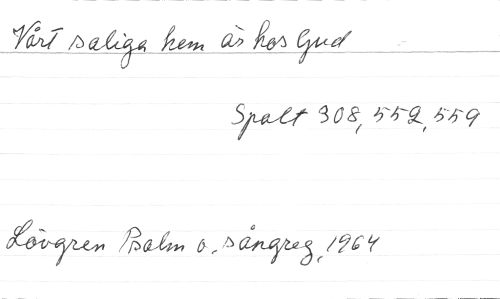 Vårt saliga hem är hos Gud
Spalt 308, 552, 559
Lövgren Psalm o. sångreg, 1964